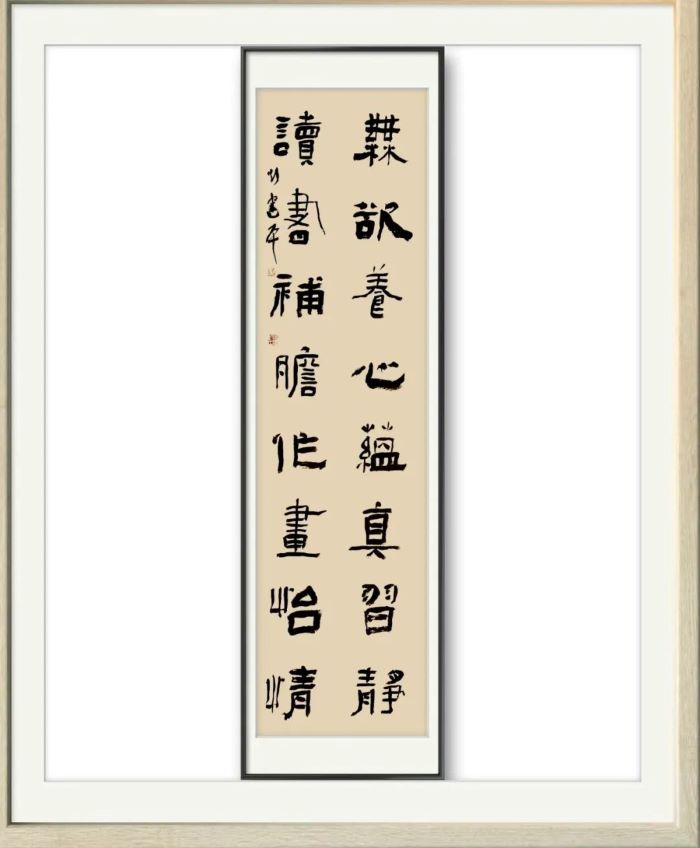 無欲養心蘊真習靜
讀書補膽作畫怡情